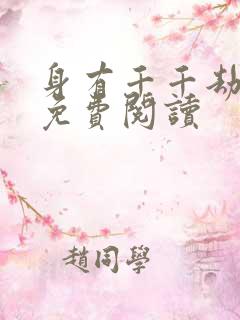 身有千千劫
免費閱讀
趙同學